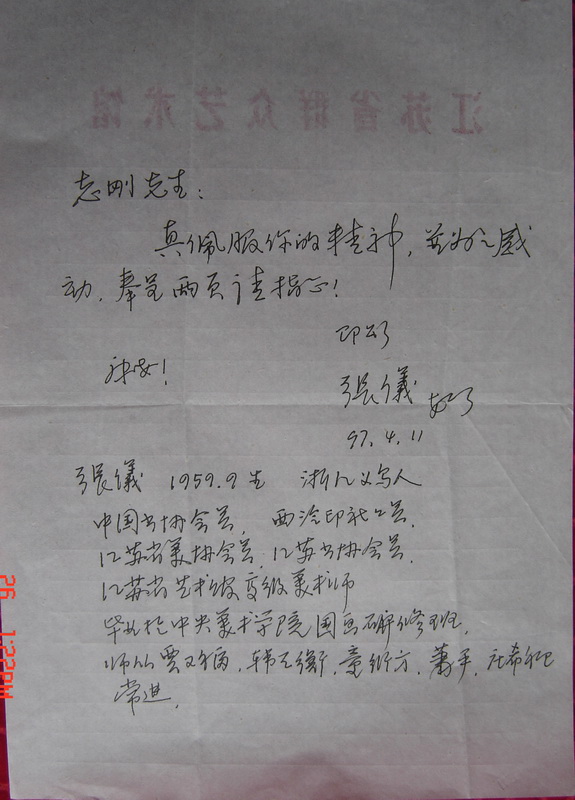 江苏省群众艺术馆
志刚先生：
真佩服你的精神，并为之感
动，奉呈两页请指正！
即颂
秋安！
張儀
97.4.11
張儀 1959.9生 浙江义乌人
中国书协会员，西泠印社社员，
江苏省美协会员，江苏书协会员，
江苏省艺术馆 级美术师
毕业于中央美术学院国画研修班，
师从贾又福，韩天衡，童衍方，萧平，杜希
常进，
26 1:22PM